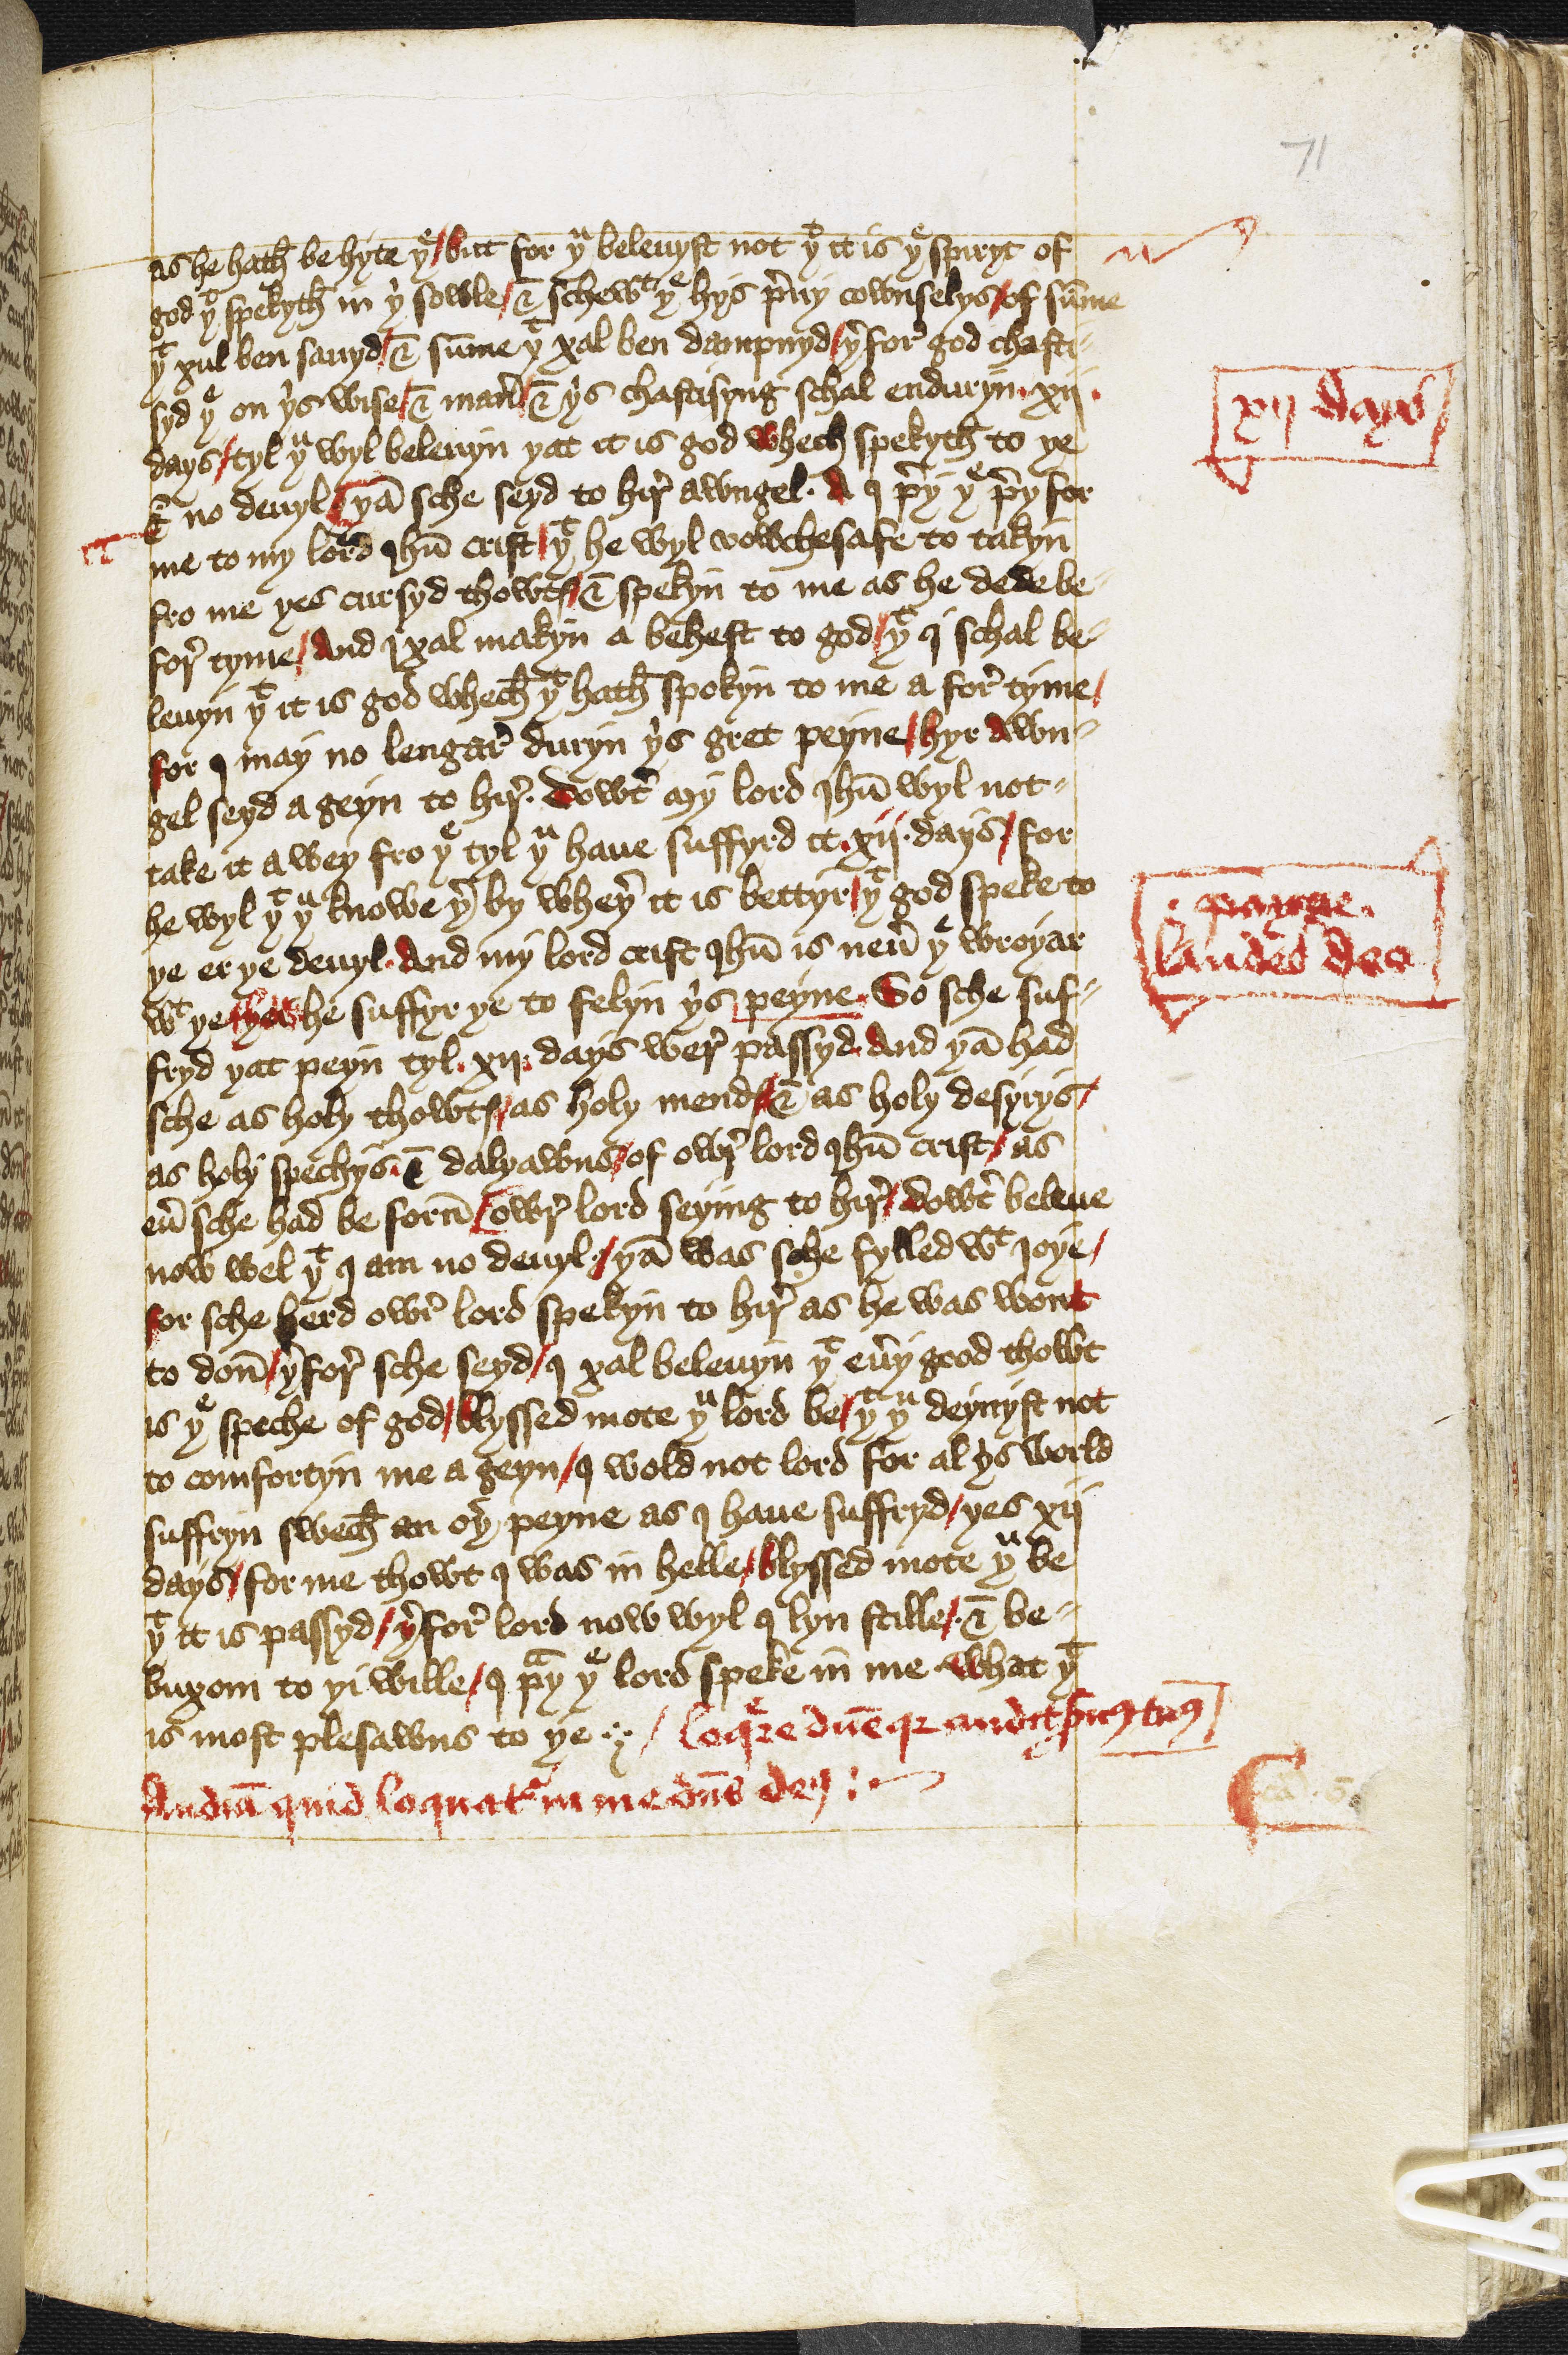 71
as he hath be hyte yͤ / but for yͧ beleuyst not yͭ it is yͤ spiryt of
god yͭ spekyth in yi sowle / & schewͭ yͤ hys p̱uy cownselys / of sūme
yͭ xul ben sauyd / & sūme yͭ xal ben dampnyd / yʳfor god chasti-
syd yͤ on yⁱs wise / & manʳ / & yⁱs chastisyng schal enduryn · xij ·
days / tyl yͧ wyl beleuyn yat it is god whech spekyth to ye
& no deuyl / yā sche seyd to hir awngel · A I p̱y yͤ p̱y for
me to my lord Ihū crist / yͭ he wyl vowchesafe to takyn
fro me yes cursyd thowtꝭ / & spekyn to me as he dede be-
for tyme / And I xal makyn a behest to god / yͭ I schal be-
leuyn yͭ it is god whech yͭ hath spokyn to me a for tyme /
for I may no lengar duryn yⁱs gret peyne / hyr Awn-
gel seyd a geyn to hir · Dowtʳ my lord Ihū wyl not-
take it a wey fro yͤ tyl yͧ haue suffyrd it · xij · days / for
he wyl yͭ yͧ knowe yʳ by wheyʳ it is bettyr / yͭ god speke to
ye er ye deuyl · And my lord crist Ihū is neuʳ yͤ wroyar
wͭ ye / yow he suffyr ye to felyn yⁱs peyne · So sche suf-
fryd yat peyn tyl · xij · days wer passyd · And yā had
sche as holy thowtꝭ / as holy mendꝭ / & as holy desyrys /
as holy spechys · & dalyawns / of owr lord Ihū crist / as
euʳ sche had be forn̄ / owr lord seying to hir / dowtʳ beleue
now wel yͭ I am no deuyl · / yā was sche fylled wͭ ioye /
for sche herd owr lord spekyn to hir as he was wont
to don̄ / yʳfor sche seyd / I xal beleuyn yͭ euʳy good thowt
is yͤ speche of god / blyssed mote yͧ lord be / yͭ yͧ deynyst not
to comfortyn me a geyn / I wold not lord for al yⁱs world
suffryn swech an oyʳ peyne as I haue suffryd / yes xij
days / for me thowt I was in helle / blyssed mote yͧ be
yͭ it is passyd / yʳfor lord now wyl I lyn stille / · & be-
buxom to yi wille / I pͣy yͤ lord speke in me what yͭ
is most plesawns to ye · / loqͬe dn̄e qr audit ꝰuꝰ tuꝰ
Audiā quid loquatʳ in me dn̄s deꝰ :
xij days
· payne ·
laudes deo